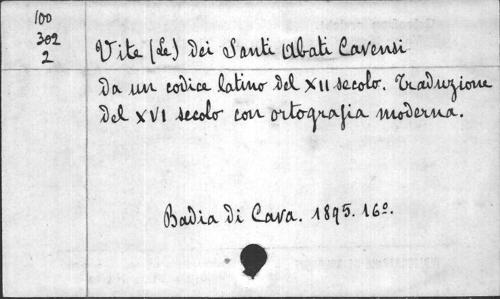 100
302
2
Vite (Le) dei Santi Abati Cavensi
Da un codice latino del XII secolo. Traduzione
del XVI secolo con ortografia moderna.
Badia di Cava. 1895. 16º.